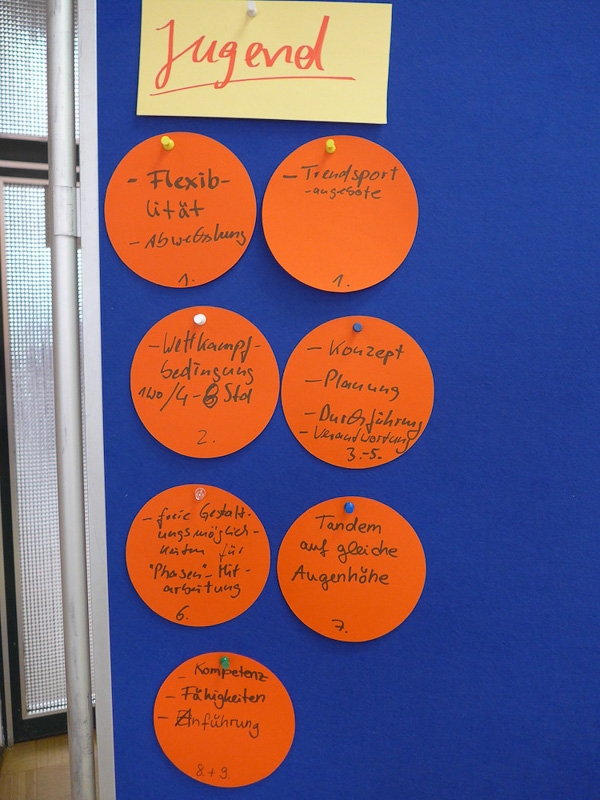 Jugend
- Flexib-
lität
- Abwechslung
1.
- Trendsport
-angebote
1.
- Wettkampf-
bedingung
1Wo/4-6 Std
2.
- Konzept
- Planung
- Durchführung
- Verantwortung
3.-5.
- freie Gestalt-
ungsmöglich-
keiten für
"Phasen"-Mit-
arbeitung
6.
Tandem
auf gleiche
Augenhöhe
7.
- Kompetenz
- Fähigkeiten
- Anführung
8.+9.